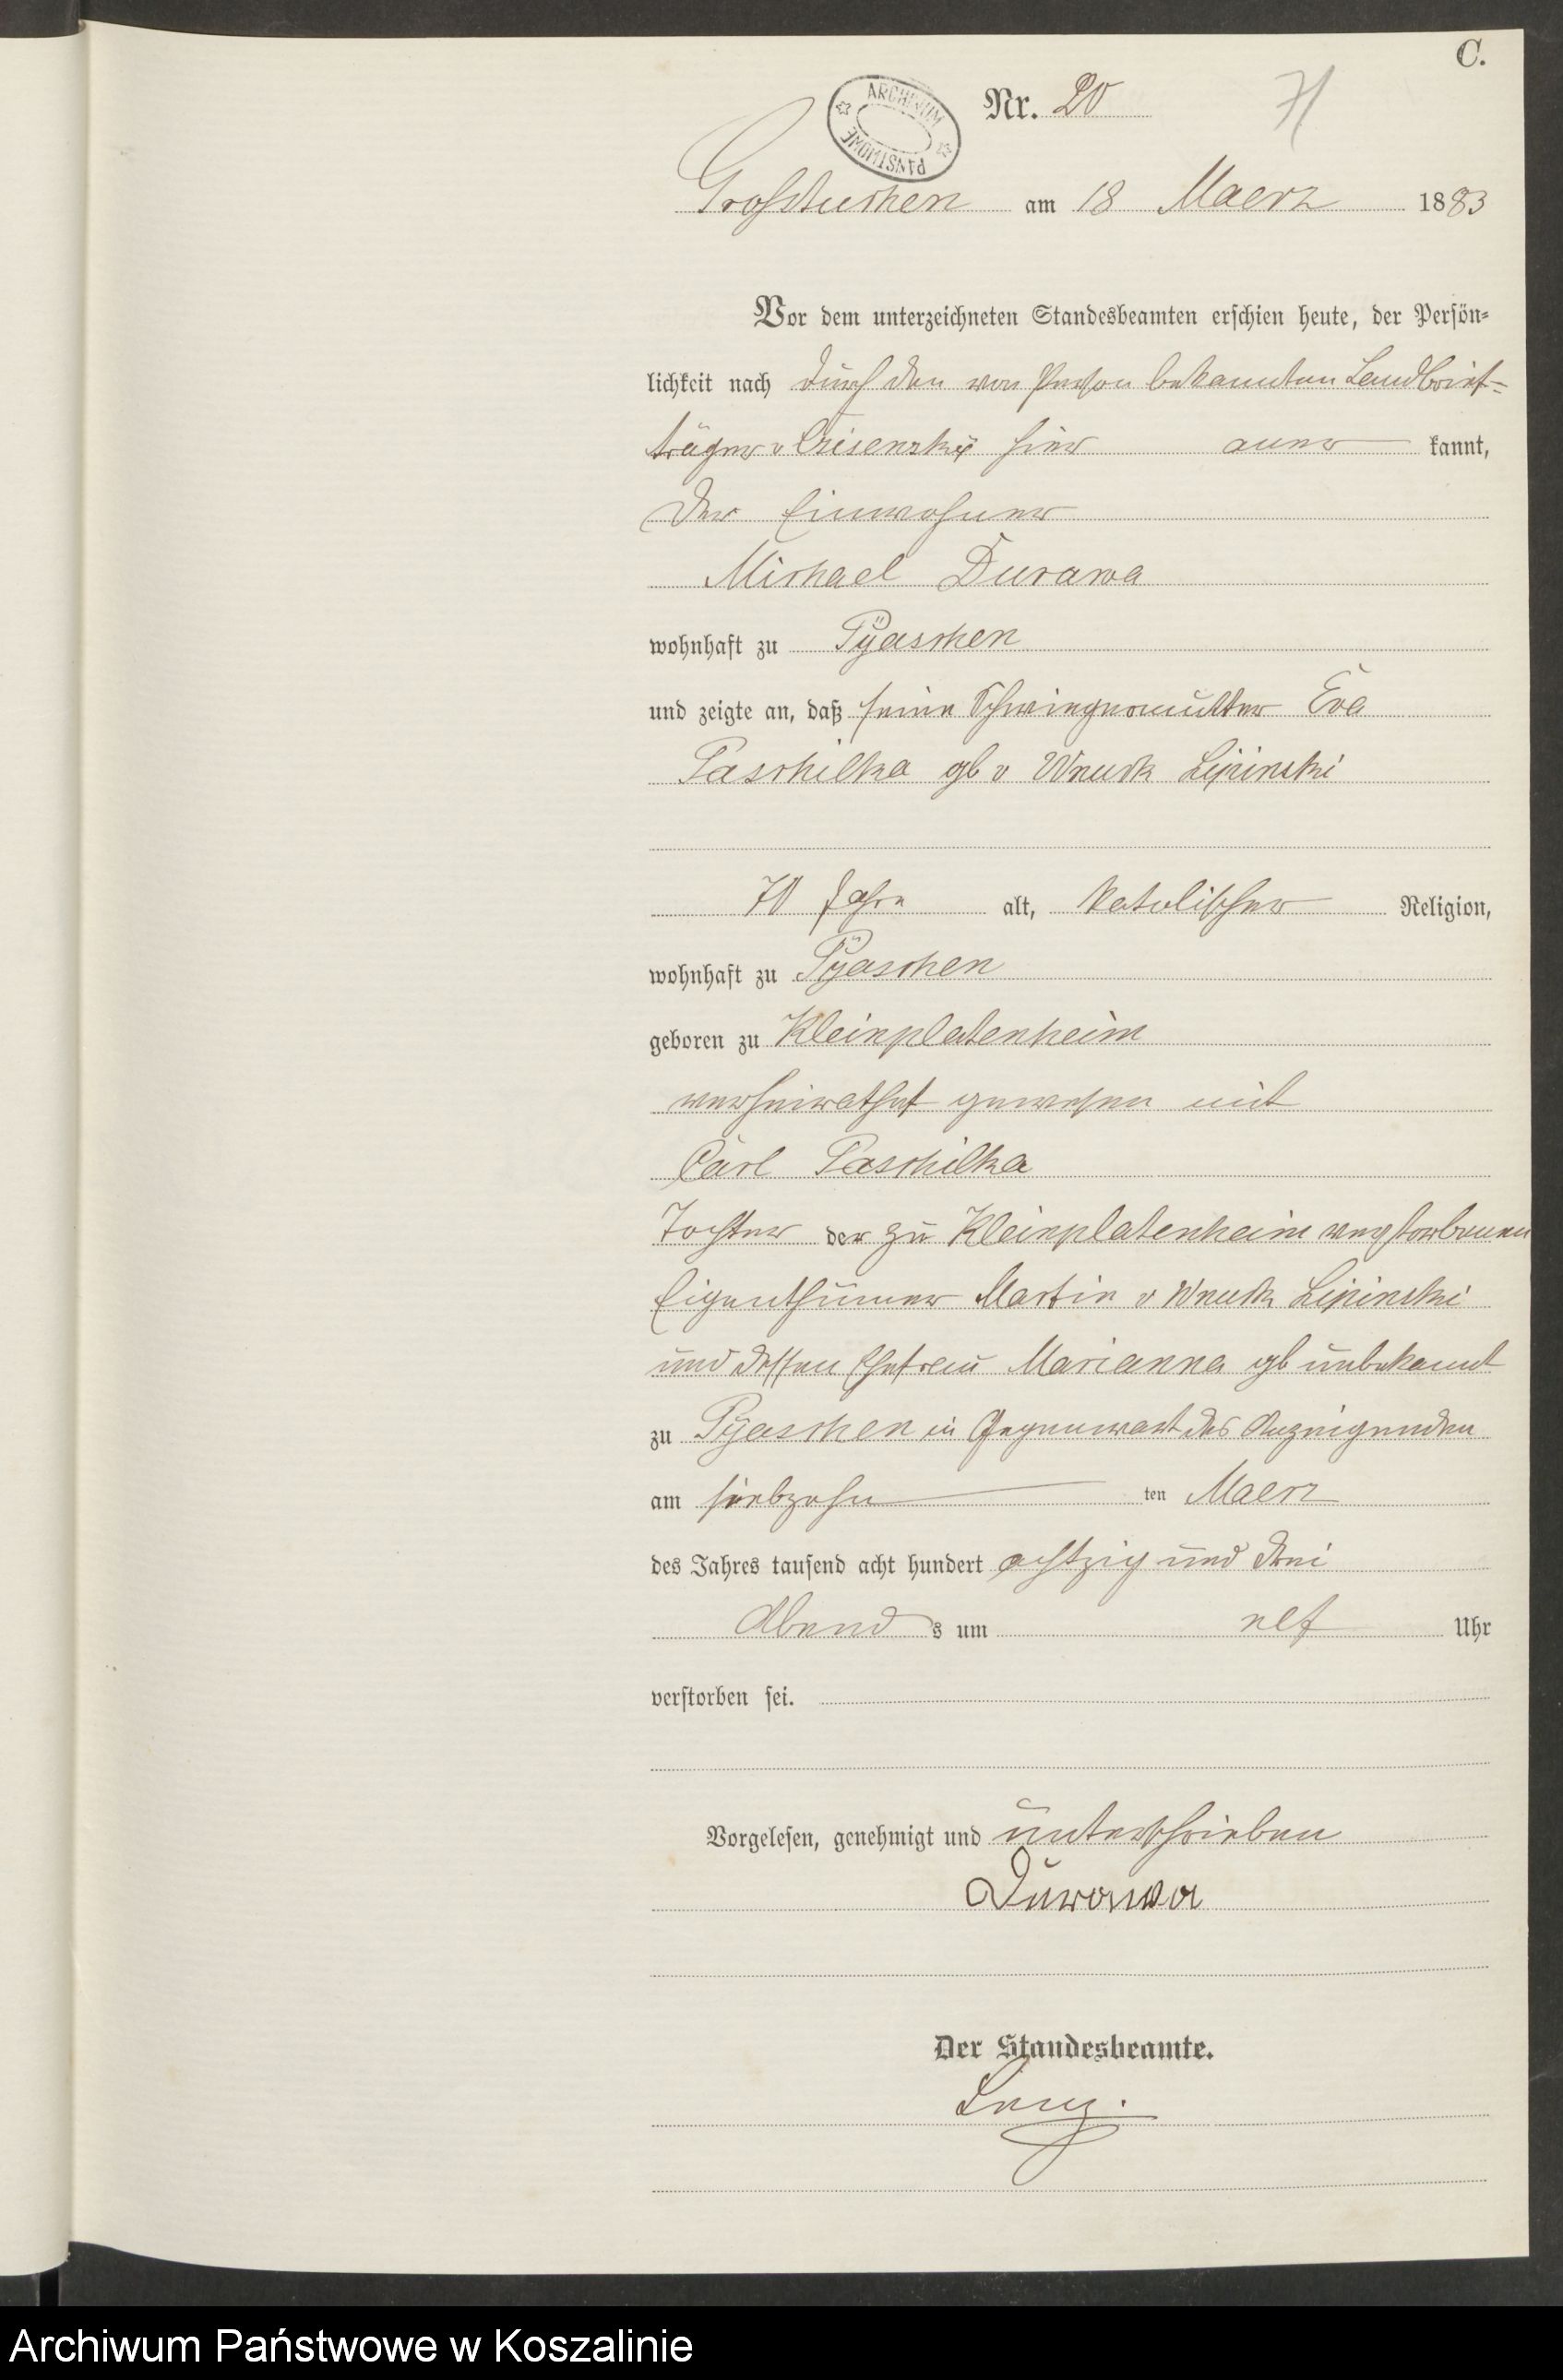 C.
Nr. 20
71
ARCHIWUM PAŃSTWOWE
Grosstuchen am 18 Maerz 1883
Vor dem unterzeichneten Standesbeamten erschien heute, der Persön-
lichkeit nach durch den von Person bekannten Landbrief-
träger v hier aner kannt,
der Einwohner
Michael Durawa
wohnhaft zu Pÿaschen
und zeigte an, daß seine Schwiegermutter Eva
Paschilka gb v Wnuck Lipinski
70 Jahre alt, katolischer Religion,
wohnhaft zu Pÿaschen
geboren zu Kleinplatenheim
verheirathet gewesen mit
Carl Paschilka
Tochter der zu Kleinplatenheim verstorbenen
Eigenthümer Martin v Wnuck Lipinski
und dessen Ehefrau Marianna gb unbekannt
zu Pÿaschen in Gegenwart des Anzeigenden
am siebzehn ten Maerz
des Jahres tausend acht hundert achtzig und drei
Abend s um elf Uhr
verstorben sei.
Vorgelesen, genehmigt und unterschrieben
Durawa
Der Standesbeamte.
Lenz.
Archiwum Państwowe w Koszalinie